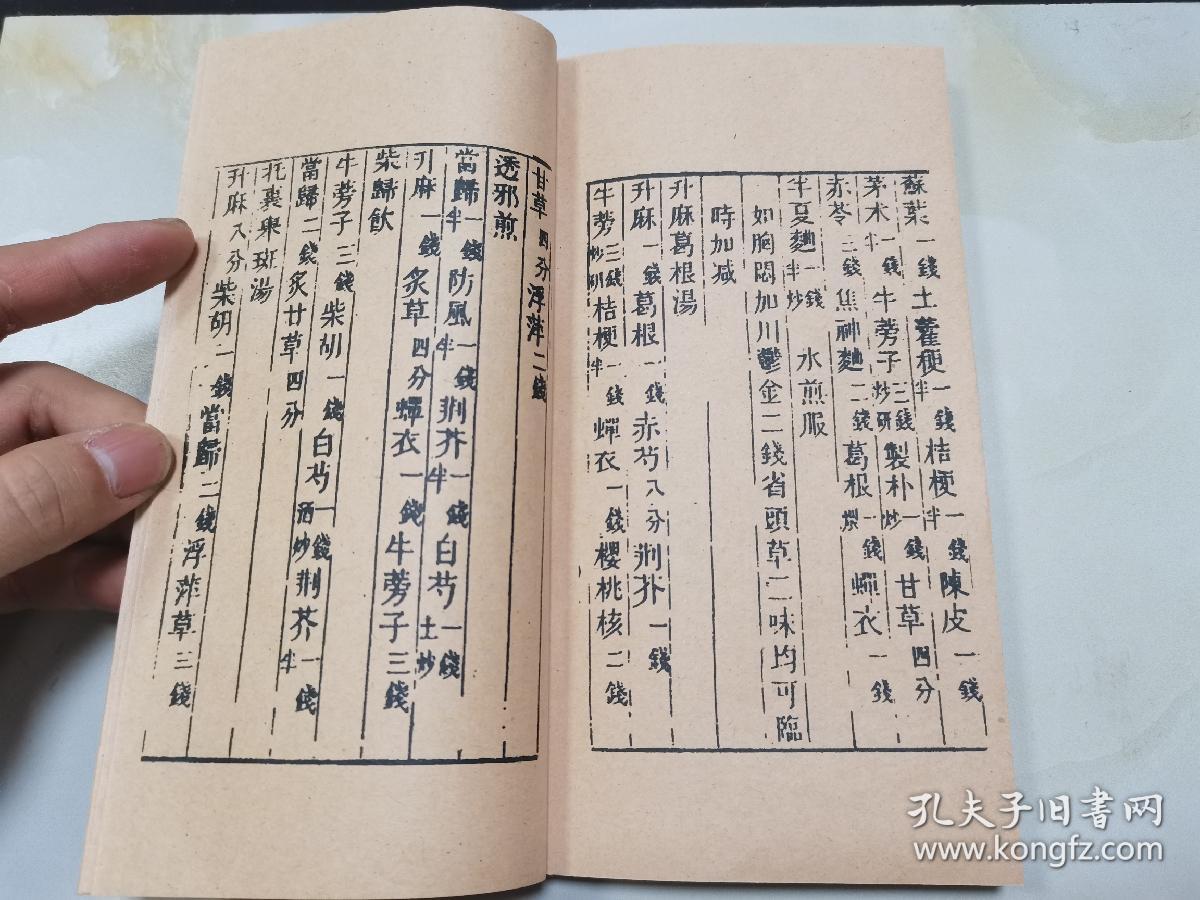 蘇葉一錢土藿梗一錢半桔梗一錢半陳皮一錢
茅朮一錢半牛蒡子三錢炒研製朴一錢炒甘草四分
赤苓二錢焦神麯二錢葛根一錢煨蟬衣一錢
半夏麯一錢半炒 水煎服
如胸悶加川鬱金二錢省頭草二味均可臨
時加減
升麻葛根湯
升麻一錢葛根一錢赤芍八分荆芥一錢
牛蒡三錢炒研桔梗一錢半蟬衣一錢櫻桃核二錢
甘草四分浮萍二錢
透邪煎
當歸一錢半防風一錢半荆芥一錢半白芍一錢土炒
升麻一錢炙草四分蟬衣一錢牛蒡子三錢
柴歸飲
牛蒡子三錢柴胡一錢白芍一錢酒炒荆芥一錢半
當歸二錢炙甘草四分
托裏舉斑湯
升麻八分柴胡一錢當歸二錢浮萍草三錢
孔夫子旧书网
www.kongfz.com